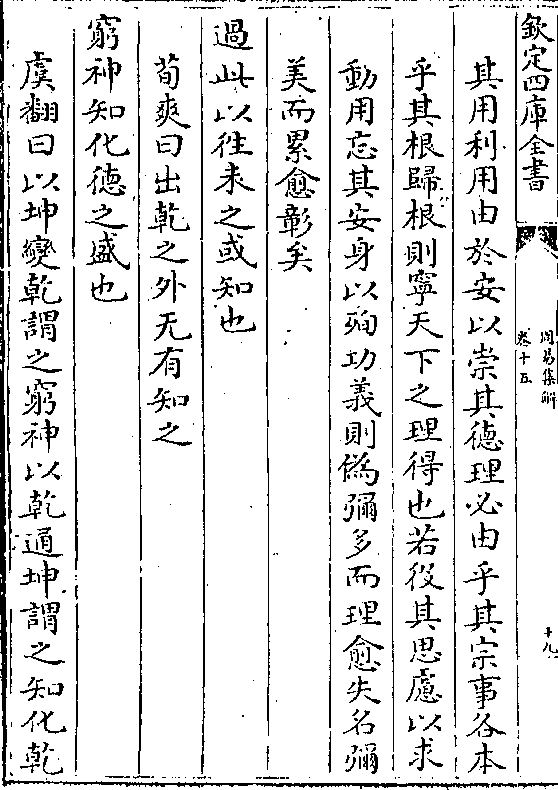 欽定四庫全書
周易集解
卷十五
十九
其用利用由於安以崇其德理必由乎其宗事各本
乎其根歸根則寧天下之理得也若役其思慮以求
動用忘其安身以殉功義則偽彌多而理愈失名彌
美而累愈彰矣
過此以往未之或知也
荀爽曰出乾之外无有知之
窮神知化德之盛也
虞翻曰以坤變乾謂之窮神以乾通坤謂之知化乾